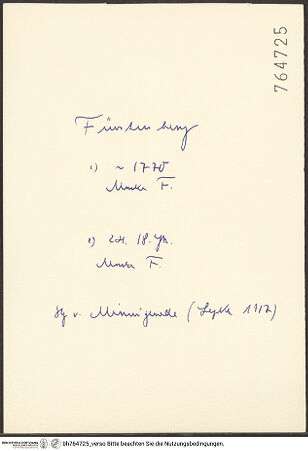 764725
Fürstenberg
1) ~ 1770
Marke F.
2) 2.H. 18. Jh.
Marke F.
Sg v. Minnigerode (Lepke 1917)
bh764725_verso Bitte beachten Sie die Nutzungsbedingungen.